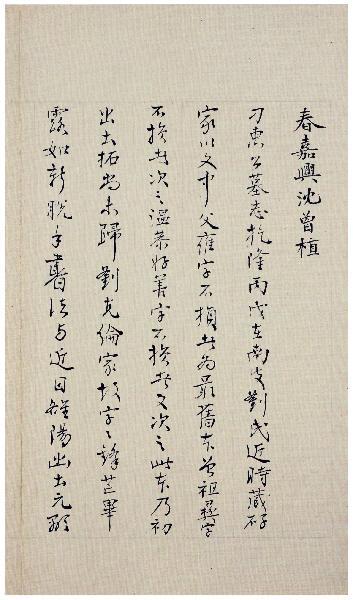 春嘉興沈曾植
刁惠公墓志乾隆丙戌在南皮劉氏近時藏弆
家以文中父雍字不損者為最舊本曾祖彝字
不損者次之溫恭好善字不損者又次之此本乃初
出土拓尚未歸劉克倫家故字〻鋒芒畢
露如新脫手書法与近日雒陽出土元顯